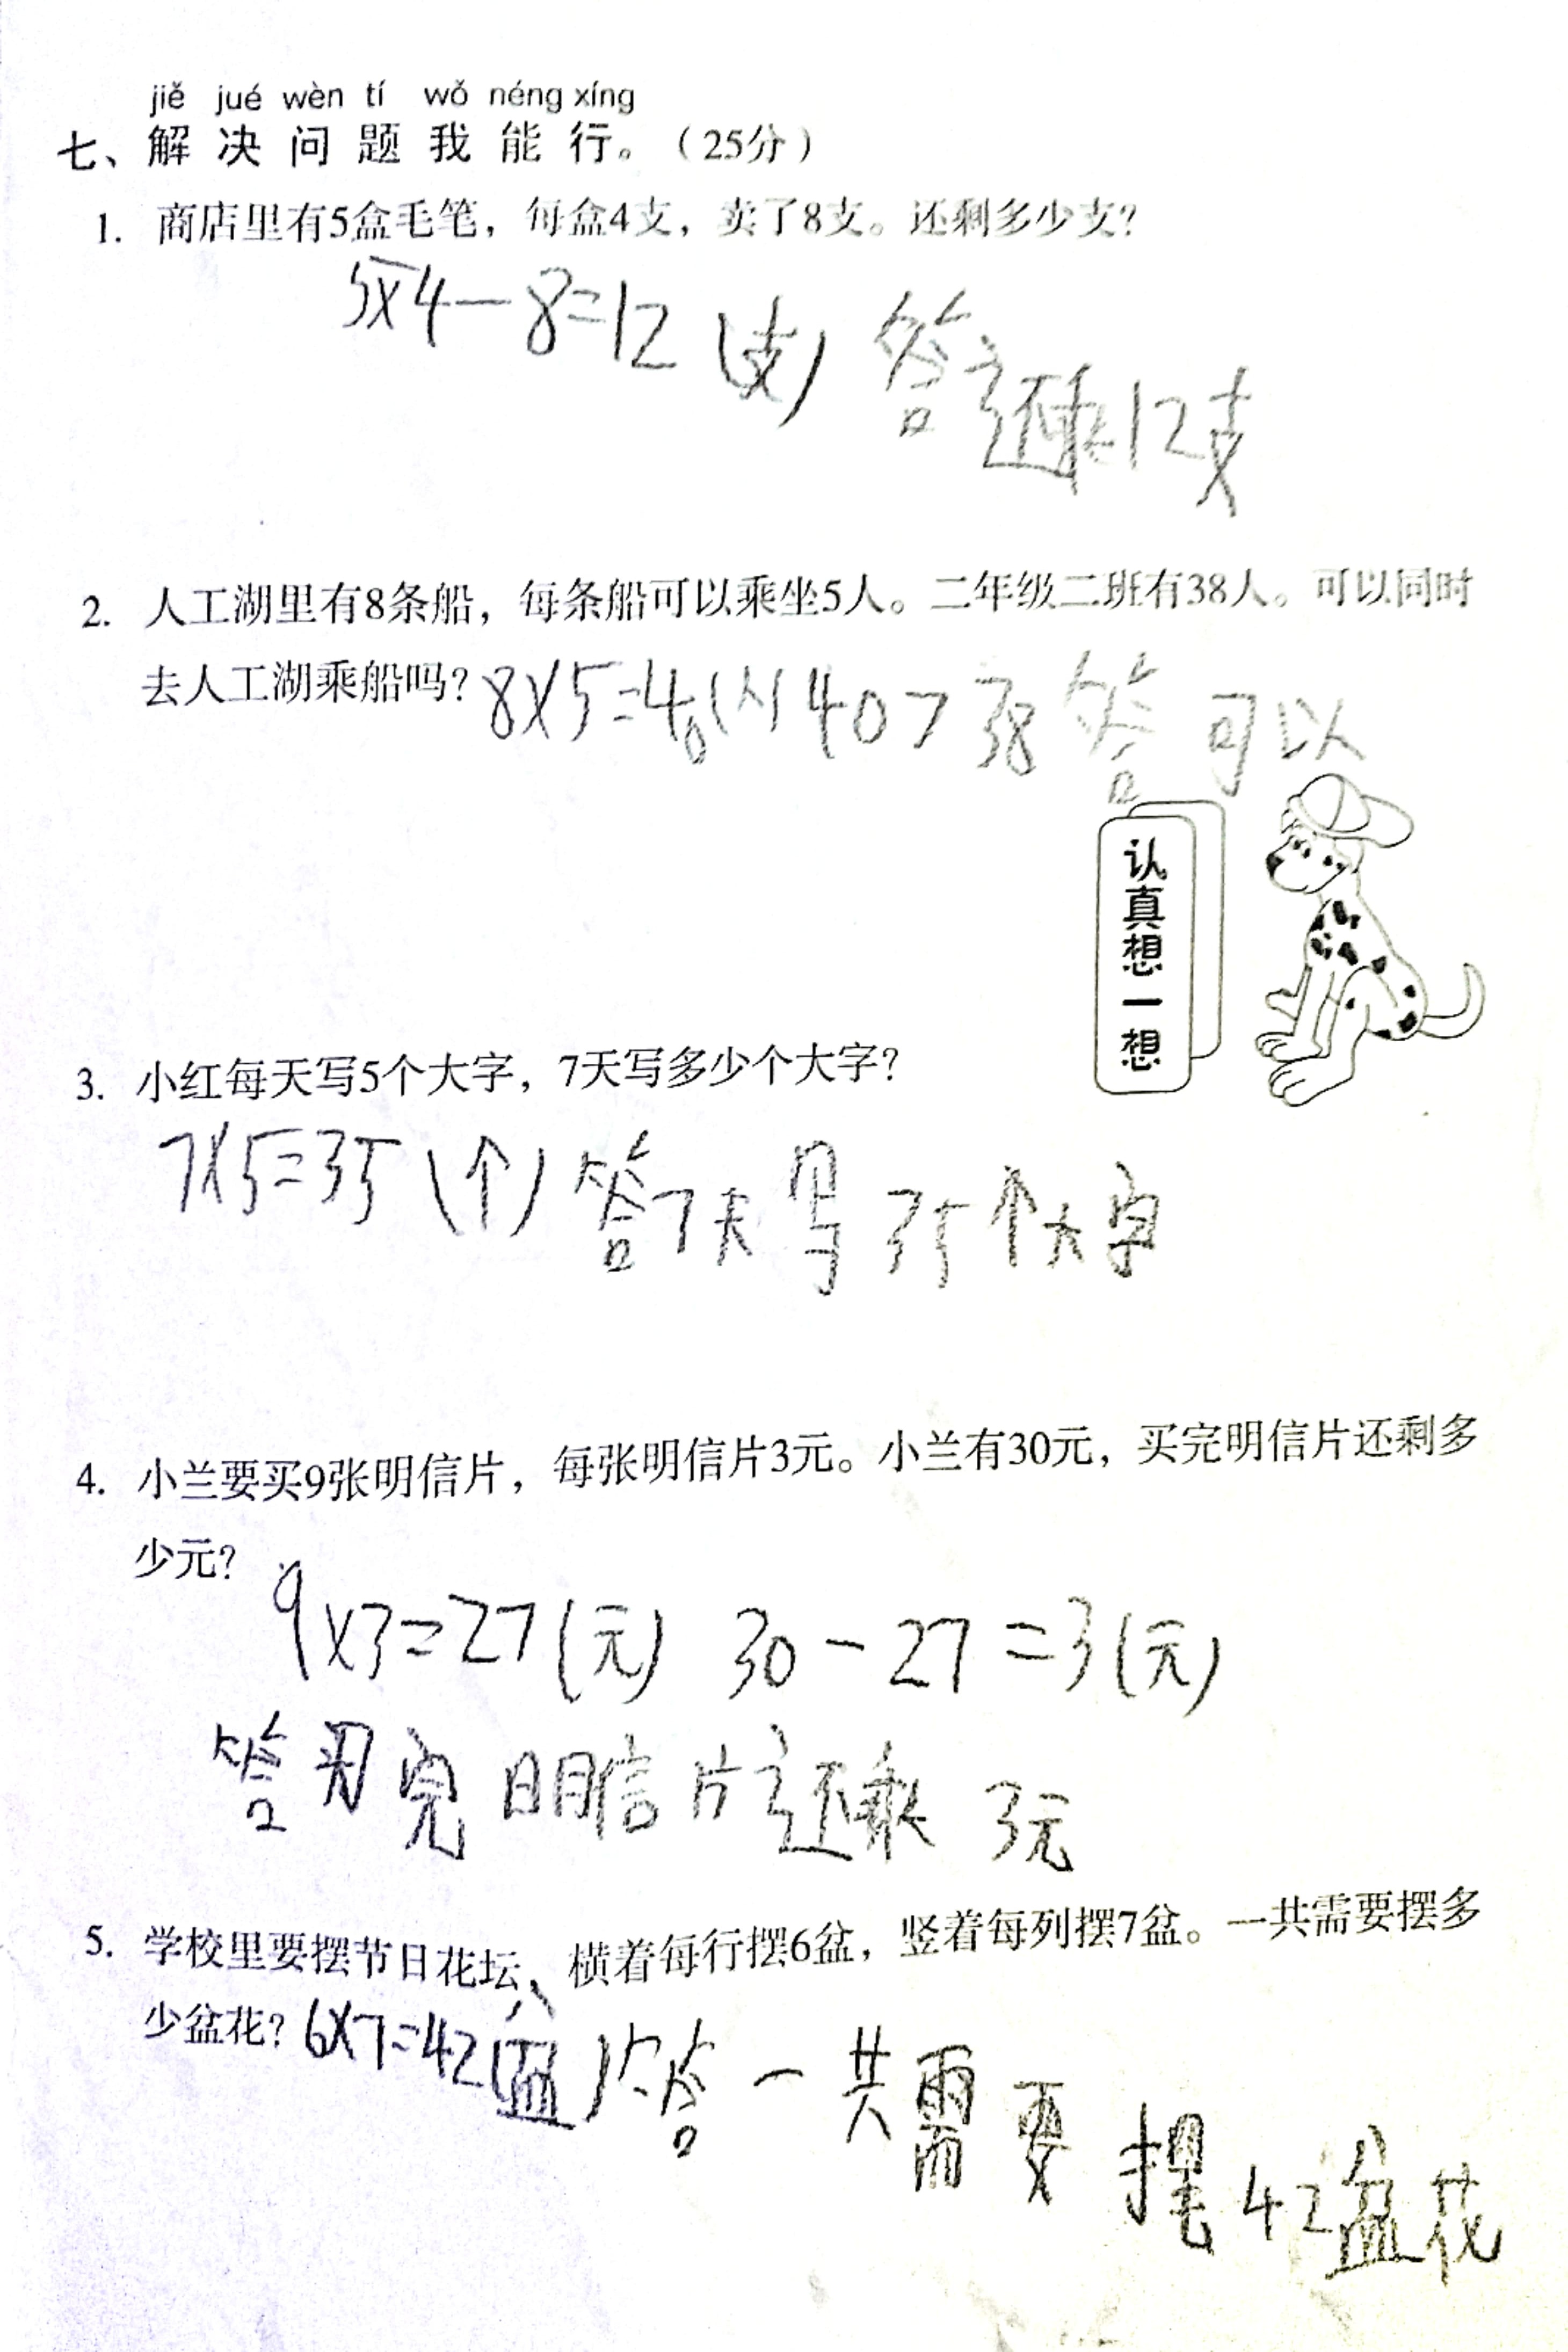 jiě jué wèn tí wǒ néng xíng
七、解决问题我能行。（25分）
1. 商店里有5盒毛笔，每盒4支，卖了8支。还剩多少支？
5×4-8=12（支）答还乘12支
2. 人工湖里有8条船，每条船可以乘坐5人。二年级二班有38人。可以同时
去人工湖乘船吗？8×5=40（人）40>38 答可以
认真想一想
3. 小红每天写5个大字，7天写多少个大字？
7×5=35（个）答7天写35个大字
4. 小兰要买9张明信片，每张明信片3元。小兰有30元，买完明信片还剩多
少元？
9×3=27（元）30-27=3（元）
答买完明信片还乘3元
5. 学校里要摆节日花坛，横着每行摆6盆，竖着每列摆7盆。一共需要摆多
少盆花？6×7=42（盆）答一共需要摆42盆花